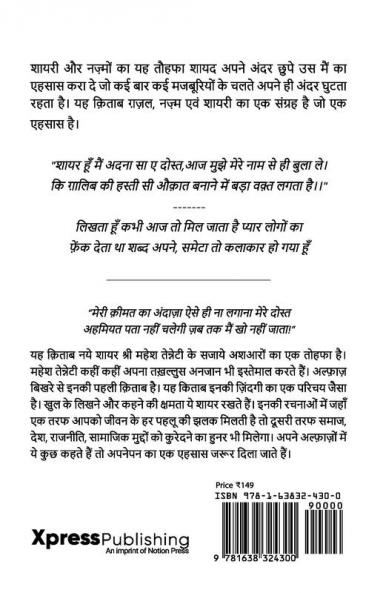 शायरी और नज़्मों का यह तौहफा शायद अपने अंदर छुपे उस मैं का
एहसास करा दे जो कई बार कई मजबूरियों के चलते अपने ही अंदर घुटता
रहता है। यह क़िताब ग़ज़ल, नज़्म एवं शायरी का एक संग्रह है जो एक
एहसास है।
"शायर हूँ मैं अदना सा ए दोस्त,आज मुझे मेरे नाम से ही बुला ले।
कि ग़ालिब की हस्ती सी औक़ात बनाने में बड़ा वक़्त लगता है।।"
-------
लिखता हूँ कभी आज तो मिल जाता है प्यार लोगों का
फ़ेंक देता था शब्द अपने, समेटा तो कलाकार हो गया हूँ
"मेरी क़ीमत का अंदाज़ा ऐसे ही ना लगाना मेरे दोस्त
अहमियत पता नहीं चलेगी ज़ब तक मैं खो नहीं जाता!"
यह क़िताब नये शायर श्री महेश तेन्नेटी के सजाये अशआरों का एक तोहफा है।
महेश तेन्नेटी कहीं कहीं अपना तख़ल्लुस अनजान भी इस्तेमाल करते हैं। अल्फ़ाज़
बिखरे से इनकी पहली क़िताब है। यह किताब इनकी ज़िंदगी का एक परिचय जैसा
है। खुल के लिखने और कहने की क्षमता ये शायर रखते हैं। इनकी रचनाओं में जहाँ
एक तरफ आपको जीवन के हर पहलू की झलक मिलती है तो दूसरी तरफ समाज,
देश, राजनीति, सामाजिक मुद्दों को कुरेदने का हुनर भी मिलेगा। अपने अल्फ़ाज़ों में
ये कुछ कहते हैं तो अपनेपन का एक एहसास जरूर दिला जाते हैं।
Price ₹149
ISBN 978-1-63832-430-0
90000
9 781638 324300
XpressPublishing
An imprint of Notion Press